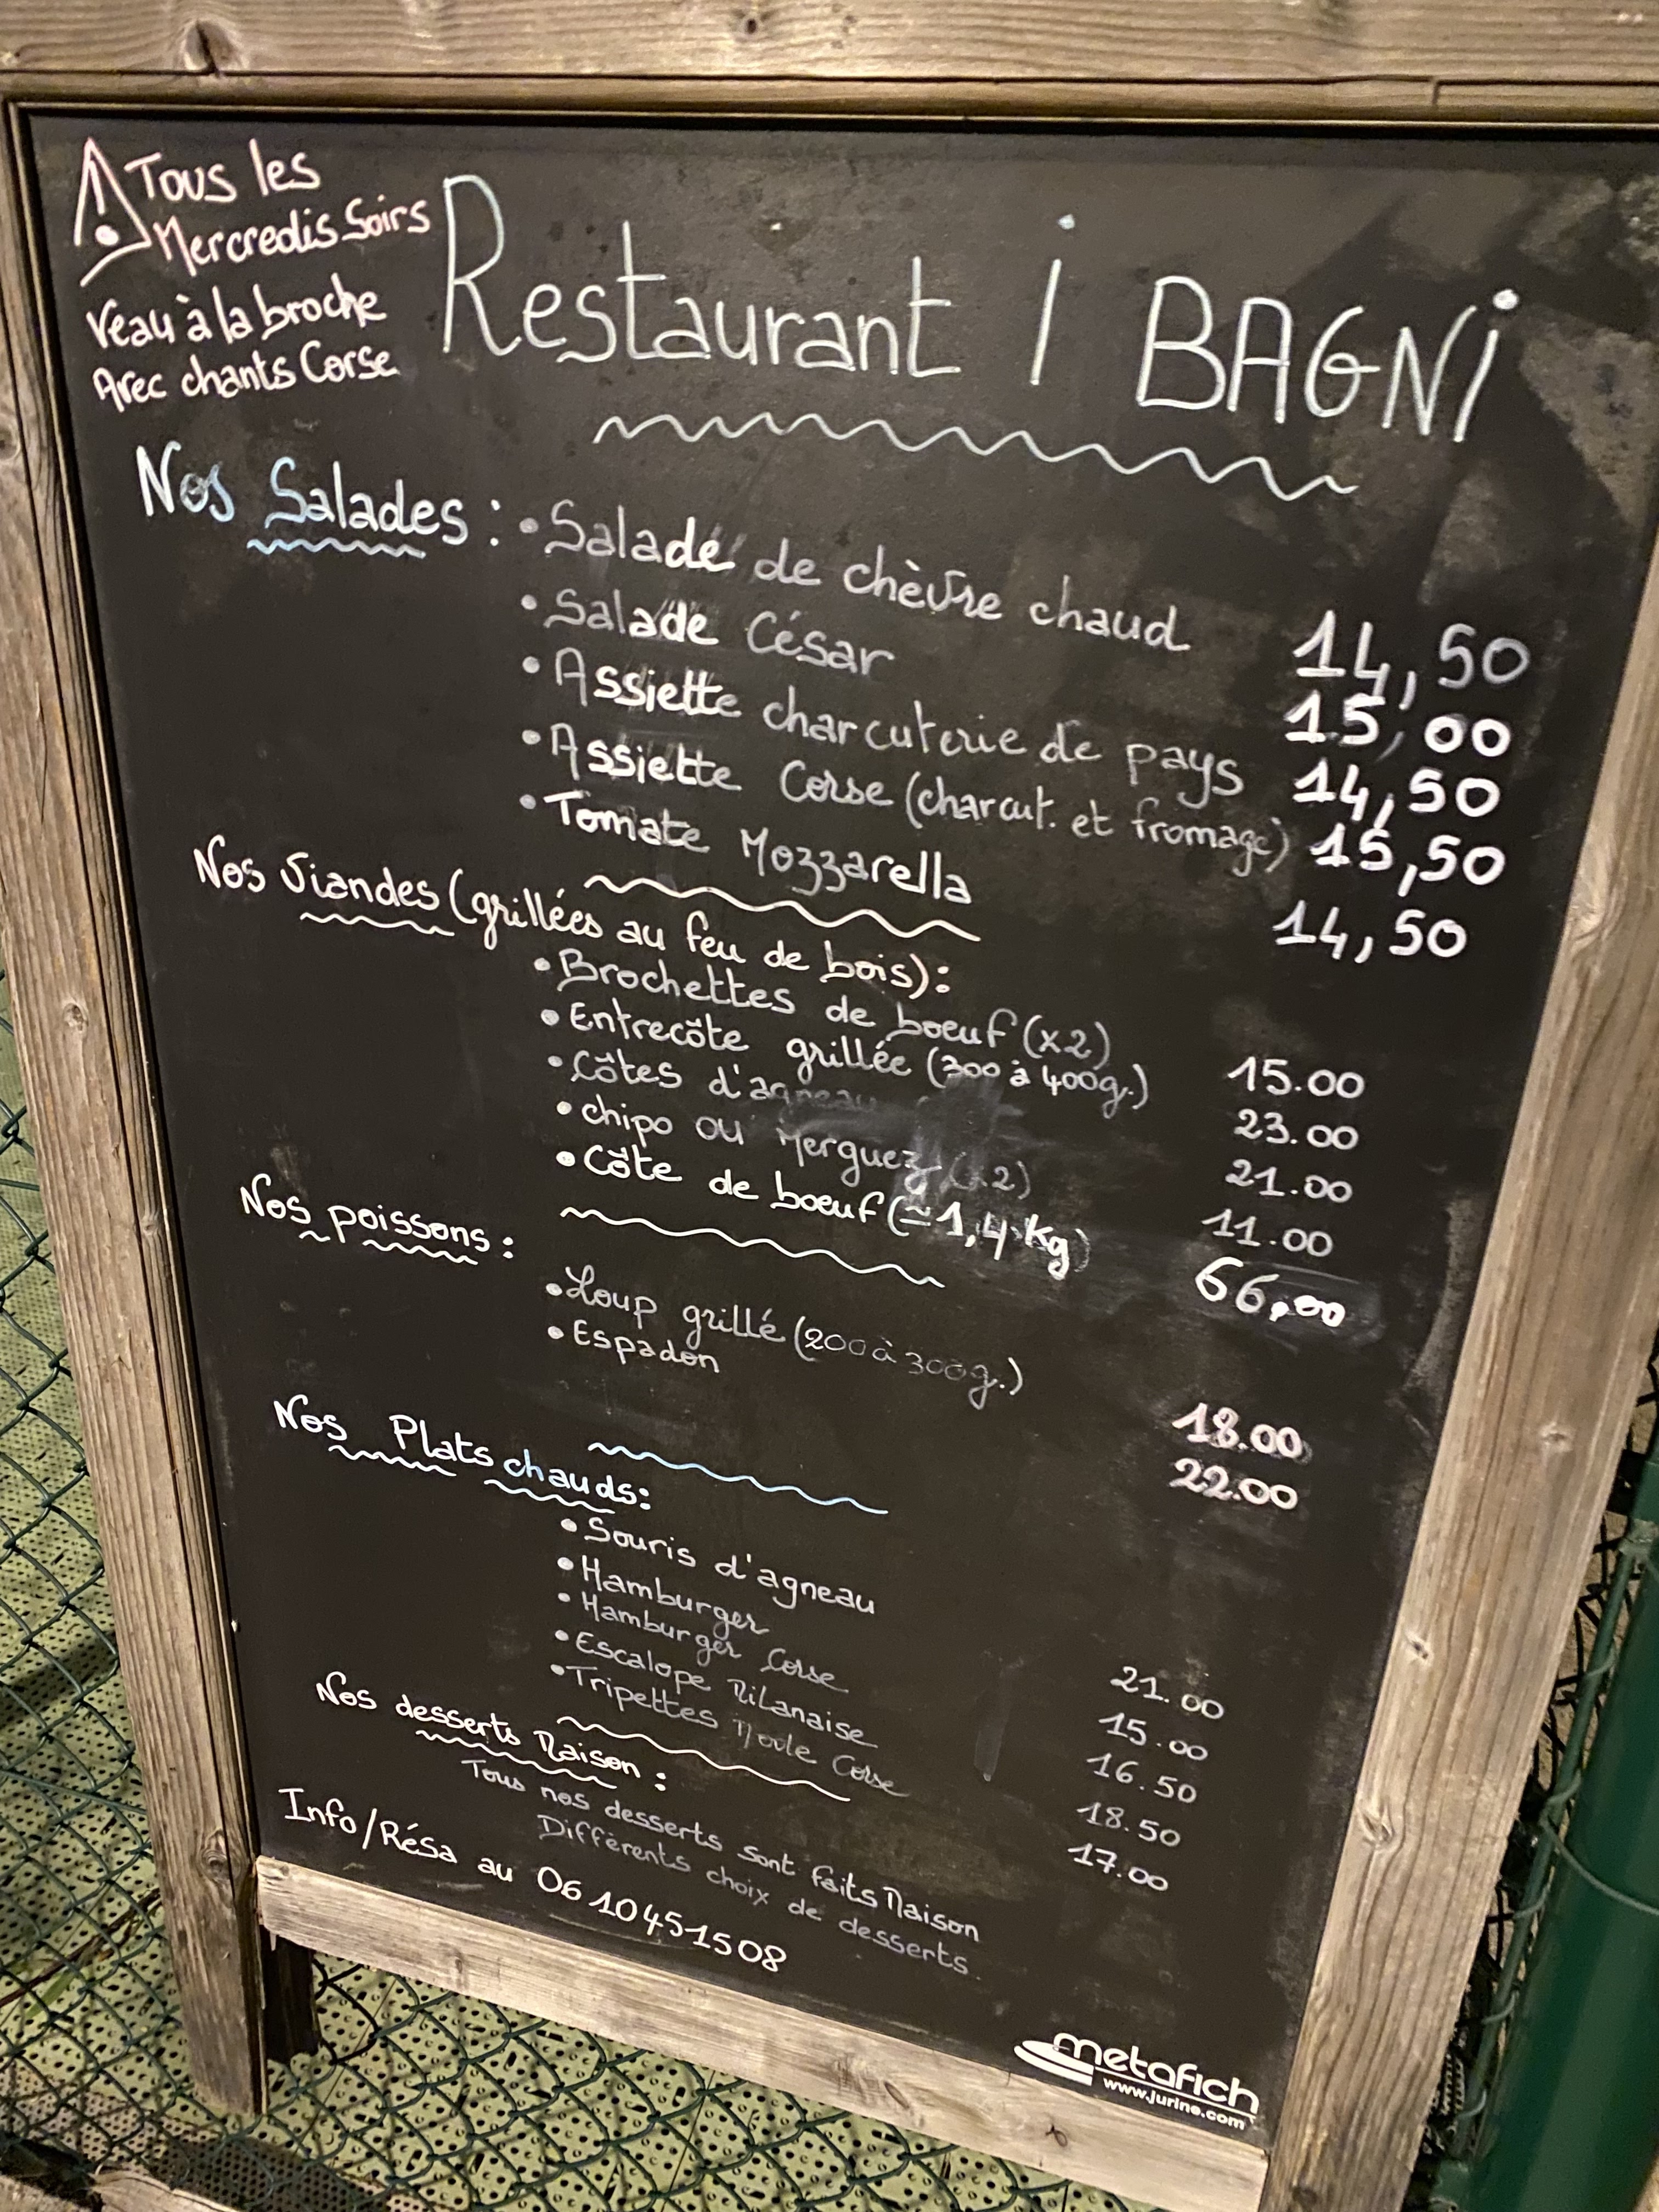 Tous les
Mercredis Soirs
Veau à la broche
Avec chants Corse
Restaurant I BAGNI
Nos Salades :
• Salade de chèvre chaud 14,50
• Salade César 15,00
• Assiette charcuterie de pays 14,50
• Assiette Corse (charcut. et fromage) 15,50
• Tomate Mozzarella 14,50
Nos Viandes (grillées au feu de bois) :
• Brochettes de boeuf (x2) 15.00
• Entrecôte grillée (300 à 400g.) 23.00
• Côtes d'agneau 21.00
• chipo ou Merguez (x2) 11.00
• Côte de boeuf (≃1,4 kg) 66,00
Nos poissons :
• Loup grillé (200 à 300g.) 18.00
• Espadon 22.00
Nos Plats chauds :
• Souris d'agneau 21.00
• Hamburger 15.00
• Hamburger Corse 16.50
• Escalope Milanaise 18.50
• Tripettes Mode Corse 17.00
Nos desserts Maison :
Tous nos desserts sont faits Maison
Différents choix de desserts.
Info/Résa au 06 10451508
metafich
www.jurine.com